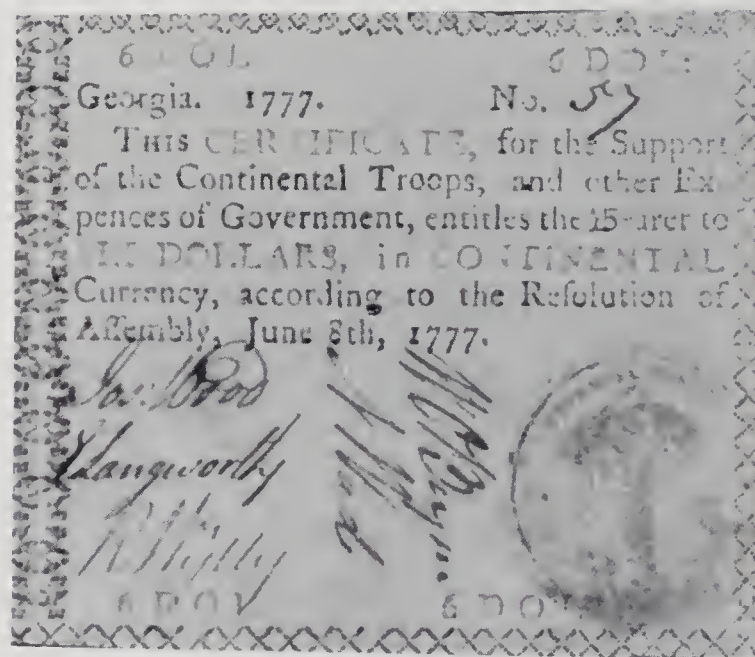 6 DOL 6 DOL:
Georgia. 1777. No. 57
THIS CERTIFICATE, for the Support
of the Continental Troops, and other Ex-
pences of Government, entitles the Bearer to
DOLLARS, in CONTINENTAL
Currency, according to the Resolution of
Assembly, June 8th, 1777.
Jos. Wood
Langworthy
6 DOL 6 DOL